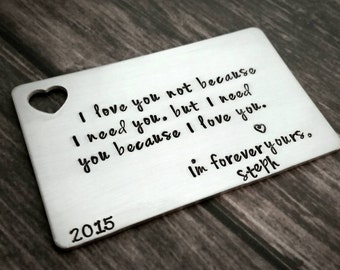 I love you not because
I need you, but I need
you because I love you.
im forever yours,
steph
2015